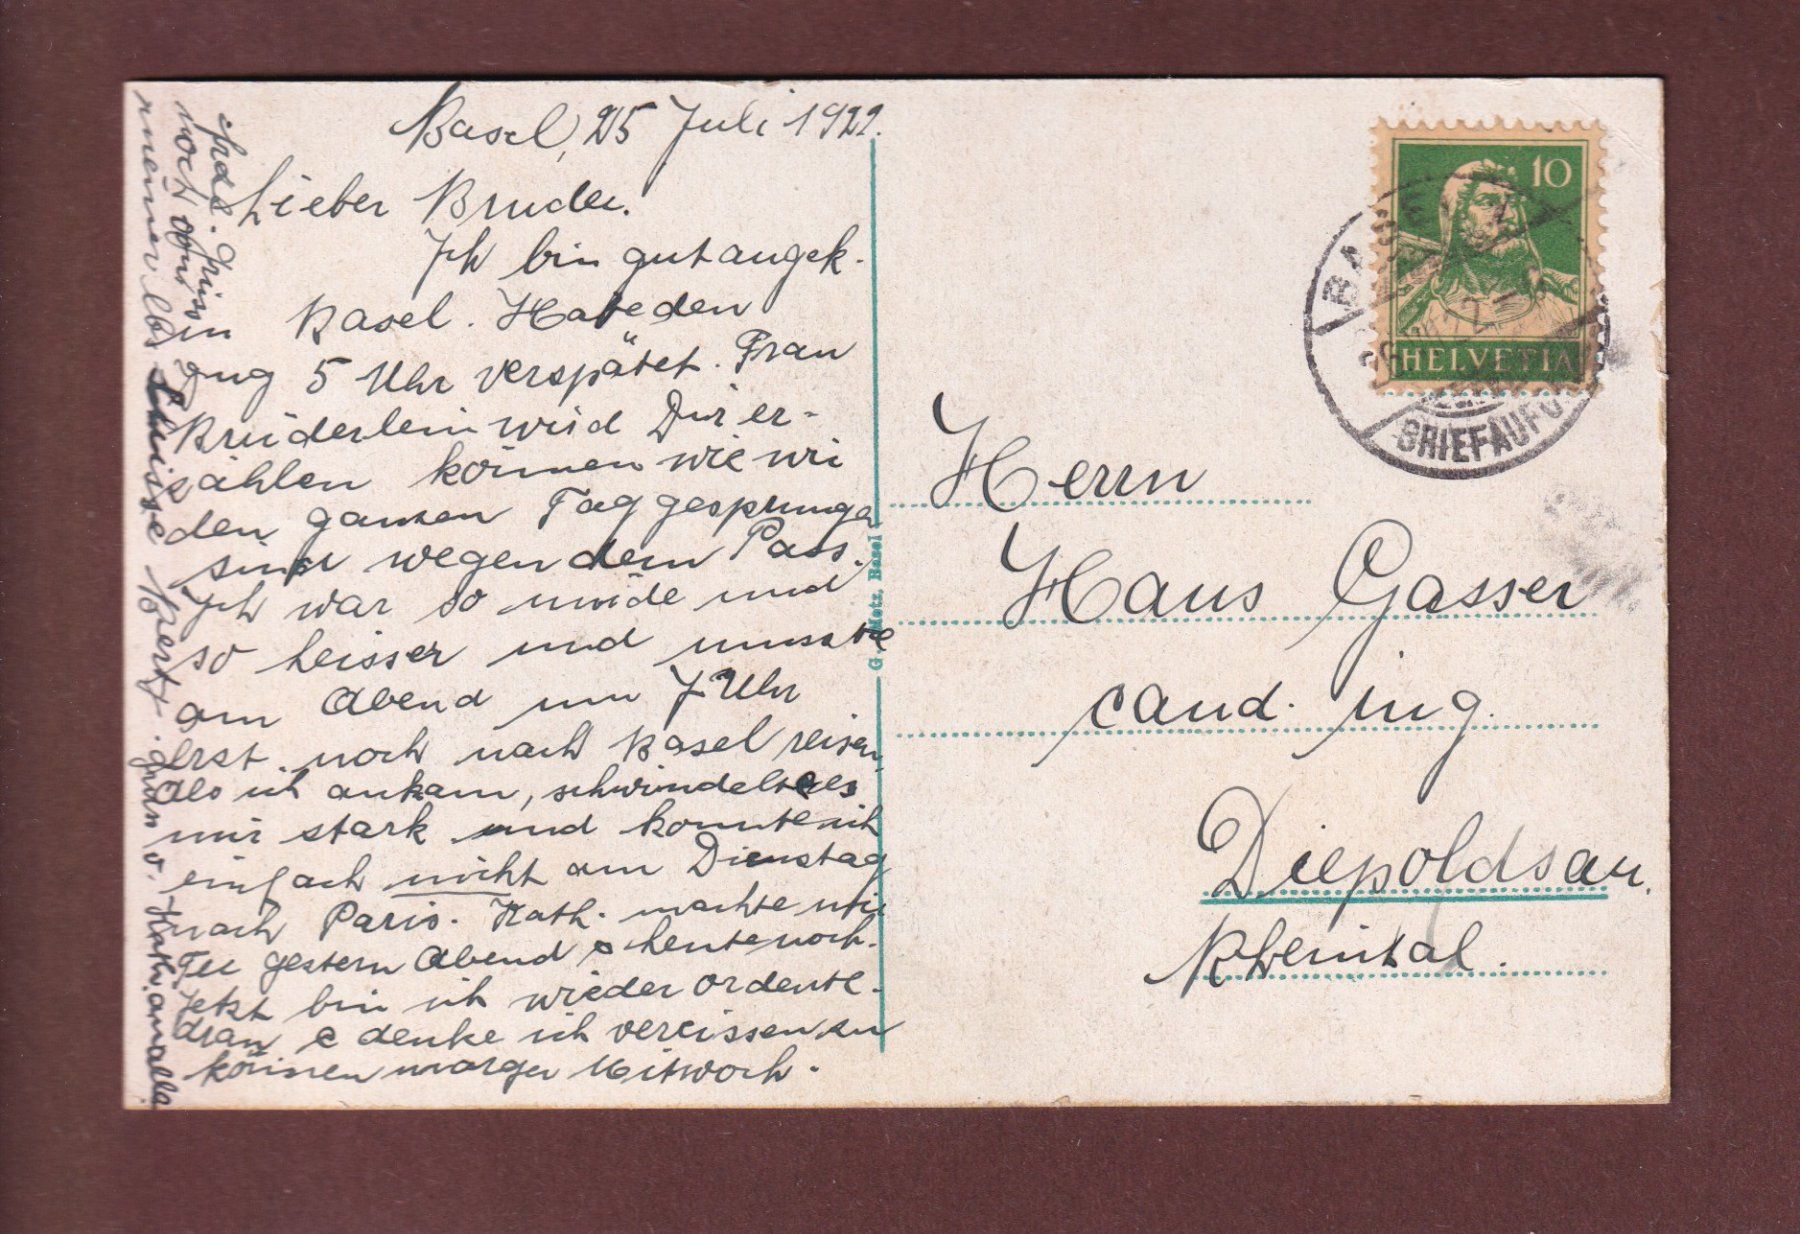 Basel, 25 Juli 1922.
Lieber Bruder.
Ich bin gut angek.
in Basel. Habe den
Zug 5 Uhr verspätet. Frau
Brüderlein wird Dir er-
zählen können wie wir
den ganzen Tag gesprungen
sind wegen dem Pass.
Ich war so müde und
so heisser und musste
am Abend um 7 Uhr
erst noch nach Basel reisen.
Als ich ankam, schwindelte es
mir stark und konnte ich
einfach nicht am Dienstag
nach Paris. Kath. machte mir
Tee gestern Abend & heute noch.
Jetzt bin ich wieder ordentl.
dran & denke ich verreissen zu
können morgen Mitwoch.
noch
meiner
Berty.
v. Kath.
Herrn
Hans Gasser
cand. ing.
Diepoldsau.
Rheintal.
10
HELVETIA
BASEL
BRIEFAUFG
Metz, Basel